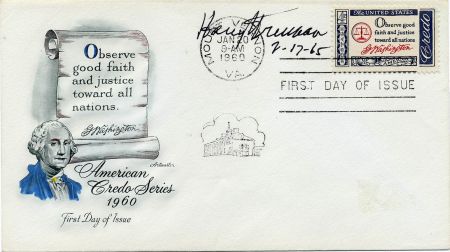 Observe
good faith
and justice
toward all
nations.
G Washington
Artmaster
American
Credo Series
1960
First Day of Issue
MOUNT VERNON
JAN 20
9-AM
1960
VA.
Harry Truman
2-17-65
The UNITED STATES
Observe
good faith
and justice
toward all nations
G Washington
Credo
FIRST DAY OF ISSUE